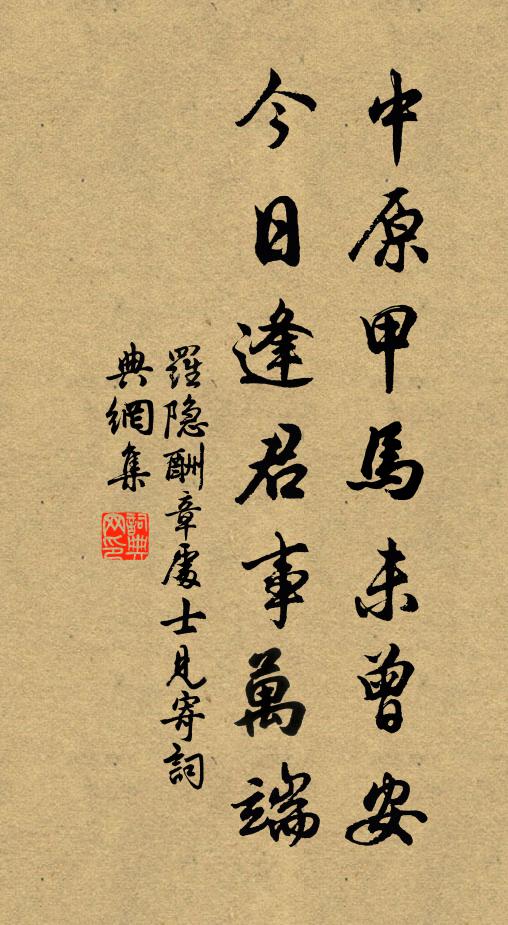 中原甲馬未曾安
今日逢君事萬端
羅隐酬章處士見寄詞
典網集
詞典
网印